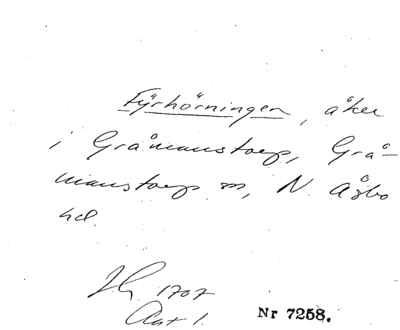 Fyrhörningen, åker
i Gråmanstorp, Grå-
manstorp sn, N. Åsbo
hd.
1707
Akt 1.
Nr 7258.